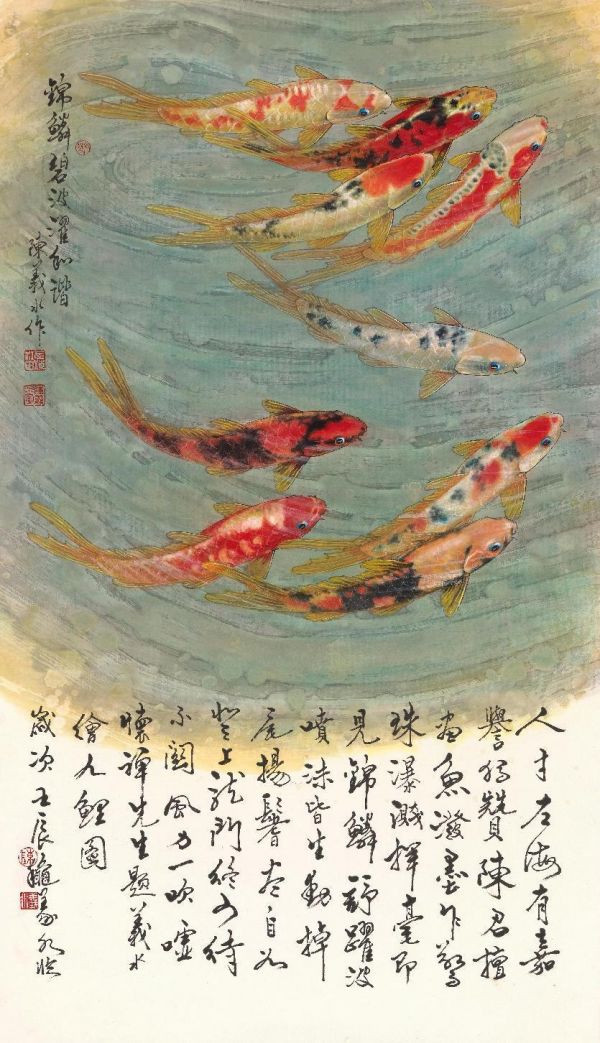 錦鱗碧波濯和諧
陳義水作
人才左海有嘉
譽獨贊陳君擅
畫魚潑墨乍驚
珠瀑濺揮毫即
見錦鱗舒躍波
噴沫皆生動掉
尾揚鬐本自如
登上龍門終可待
不關風力一吹噓
懷禪先生題義水
繪九鯉圖
歲次壬辰龝義水